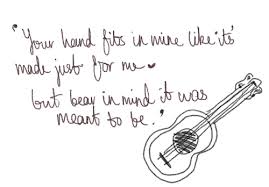 "Your hand fits in mine like 'its'
made just for me
but bear in mind it was
meant to be.'